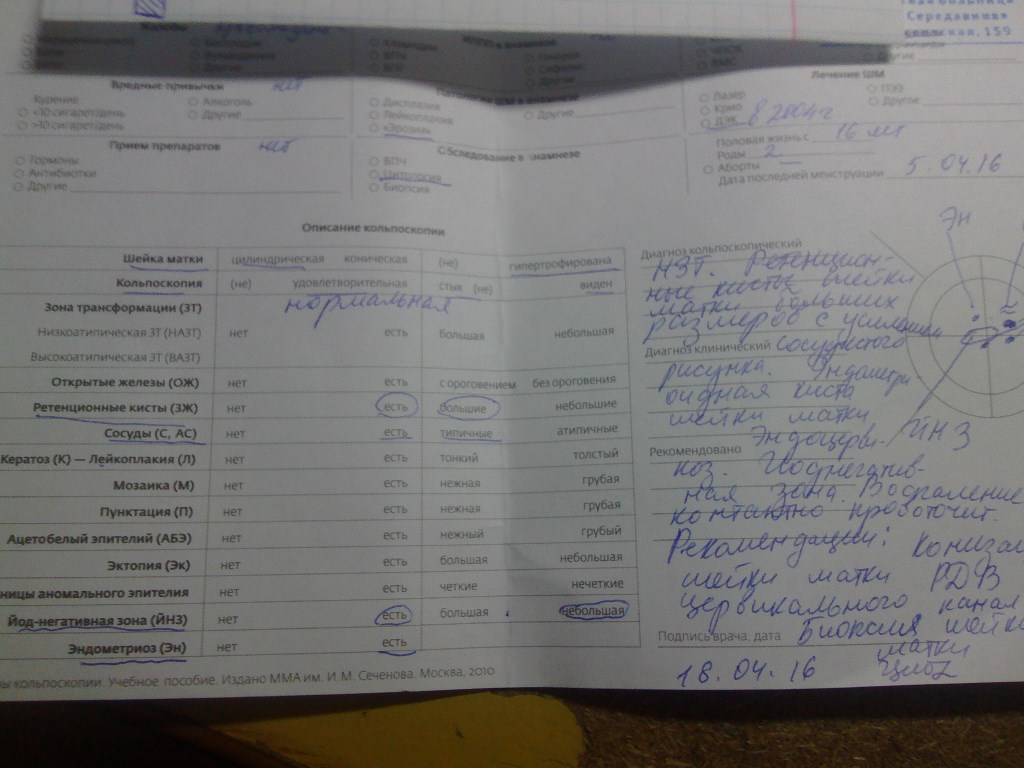 Середавина»
159
Вредные привычки нет
Курение
<10 сигарет/день
>10 сигарет/день
Алкоголь
Другие
Дисплазия
Лейкоплакия
«Эрозия»
Другие
Лечение ШМ
Лазер
Крио
ДЭК в 2004 г
ПЭЭ
Другое
Прием препаратов нет
Гормоны
Антибиотки
Другие
Обследование в анамнезе
ВПЧ
Цитология
Биопсия
Половая жизнь с 16 лет
Роды 2
Аборты
Дата последней менструации 5.04.16
Описание кольпоскопии
Шейка матки цилиндрическая коническая (не) гипертрофирована
Кольпоскопия (не) удовлетворительная стык (не) виден
Зона трансформации (ЗТ) нормальная
Низкоатипическая ЗТ (НАЗТ) нет есть большая небольшая
Высокоатипическая ЗТ (ВАЗТ)
Открытые железы (ОЖ) нет есть с ороговением без ороговения
Ретенционные кисты (ЗЖ) нет есть большие небольшие
Сосуды (С, АС) нет есть типичные атипичные
Кератоз (К) — Лейкоплакия (Л) нет есть тонкий толстый
Мозаика (М) нет есть нежная грубая
Пунктация (П) нет есть нежная грубая
Ацетобелый эпителий (АБЭ) нет есть нежный грубый
Эктопия (Эк) нет есть большая небольшая
ницы аномального эпителия нет есть четкие нечеткие
Йод-негативная зона (ЙНЗ) нет есть большая небольшая
Эндометриоз (Эн) нет есть
ы кольпоскопии. Учебное пособие. Издано ММА им. И. М. Сеченова. Москва, 2010
Эн
Диагноз кольпоскопический
НЗТ. Ретенцион-
ные кисты шейки
матки больших
размеров с усилением
Диагноз клинический сосудистого
рисунка. Эндометри
оидная киста
шейки матки
Эндоцерви-
ЙНЗ
Рекомендовано
коз. Йоднегатив-
ная зона. Воспаление
контактно кровоточит.
Рекомендации: Кониза
шейки матки РДВ
цервикального канал
Подпись врача, дата Биопсия шейк
матки
18.04.16